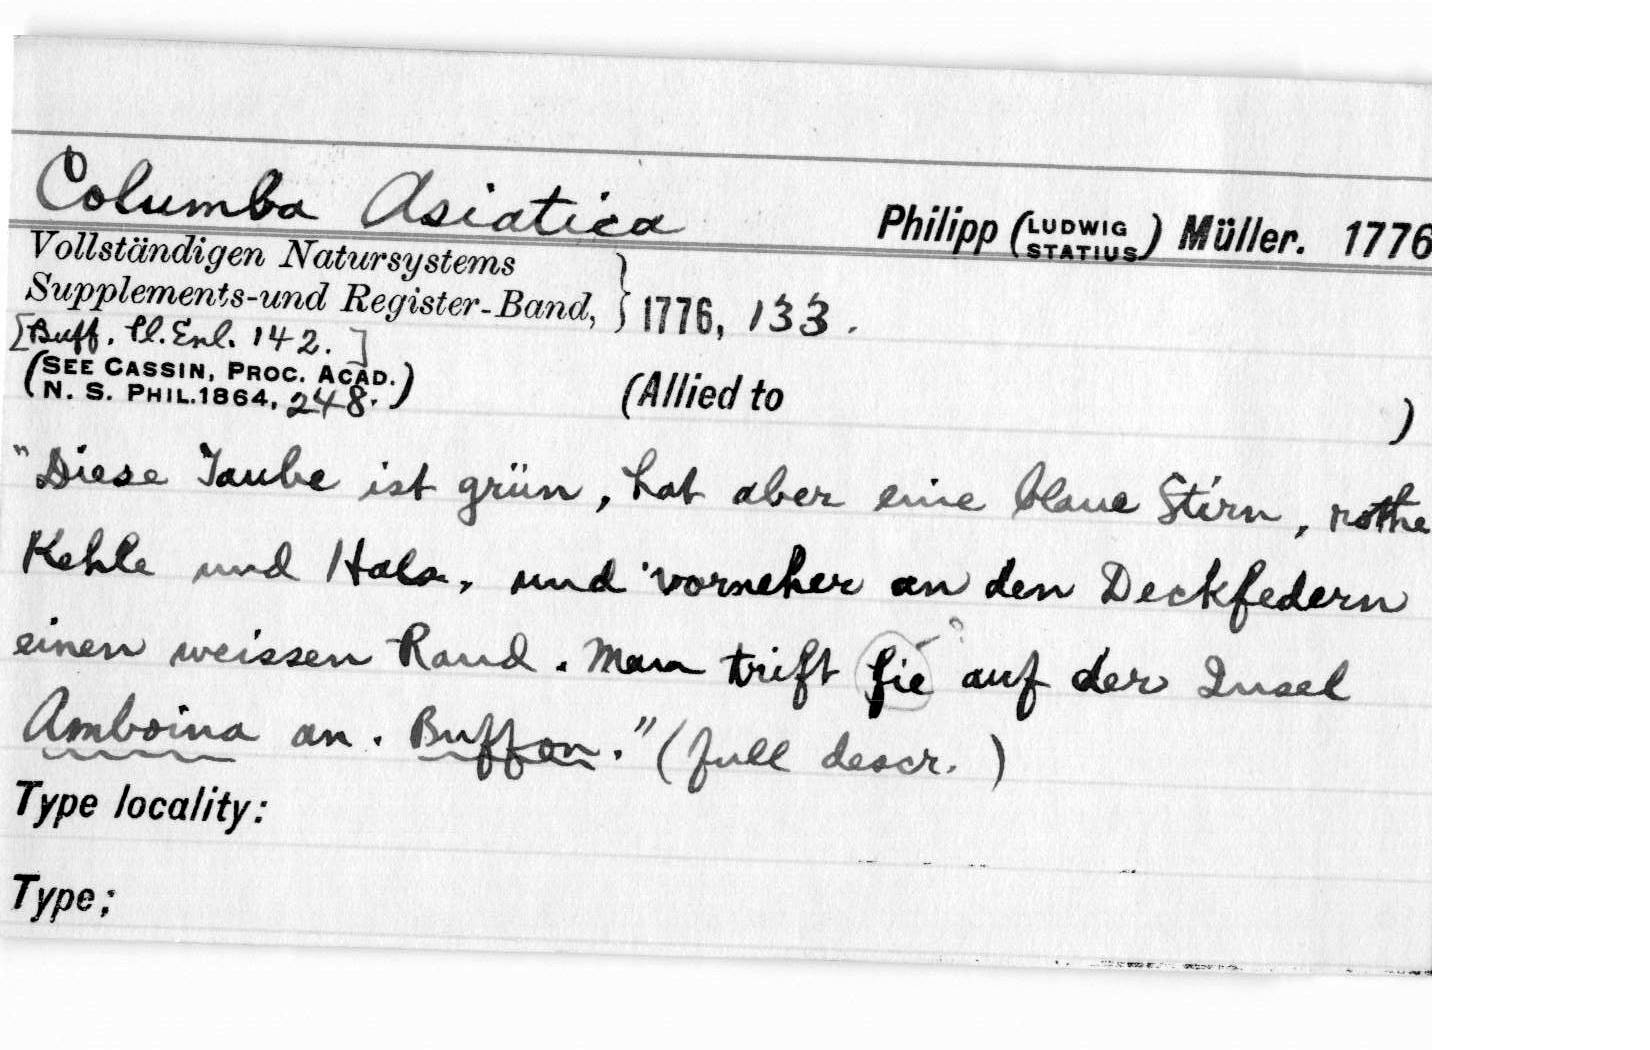 Columba Asiatica Philipp (LUDWIG STATIUS) Müller. 1776
Vollständigen Natursystems
Supplements-und Register-Band, } 1776, 133.
[Buff. Pl. Enl. 142.]
(SEE CASSIN, PROC. ACAD.
N. S. PHIL. 1864, 248.) (Allied to )
"Diese Taube ist grün, hat aber eine blaue Stirn, rothe
Kehle und Hals, und vorneher an den Deckfedern
einen weissen Rand. Man trift fie ? auf der Insel
Amboina an. Buffon." (full descr.)
Type locality:
Type;